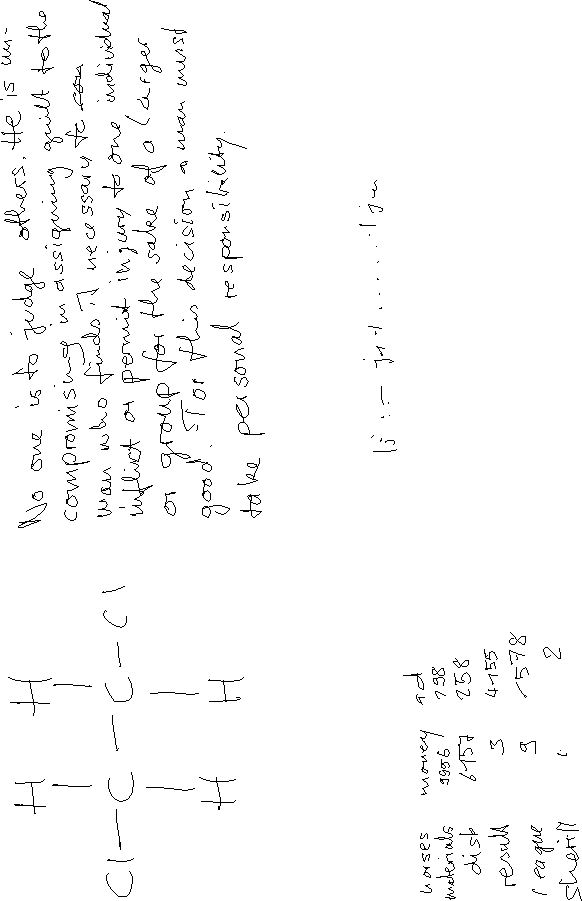 No one is to judge others. He is un-
compromising in assigning guilt to the
man who finds it necessary to
inflict or permit injury to one individual
or group for the sake of a larger
good. For this decision a man must
take personal responsibility.
H H
Cl — C — C — Cl
H H
horses money rd
materials 9956 198
disp 6157 258
result 3 4155
league 9 -578
sheriff 2